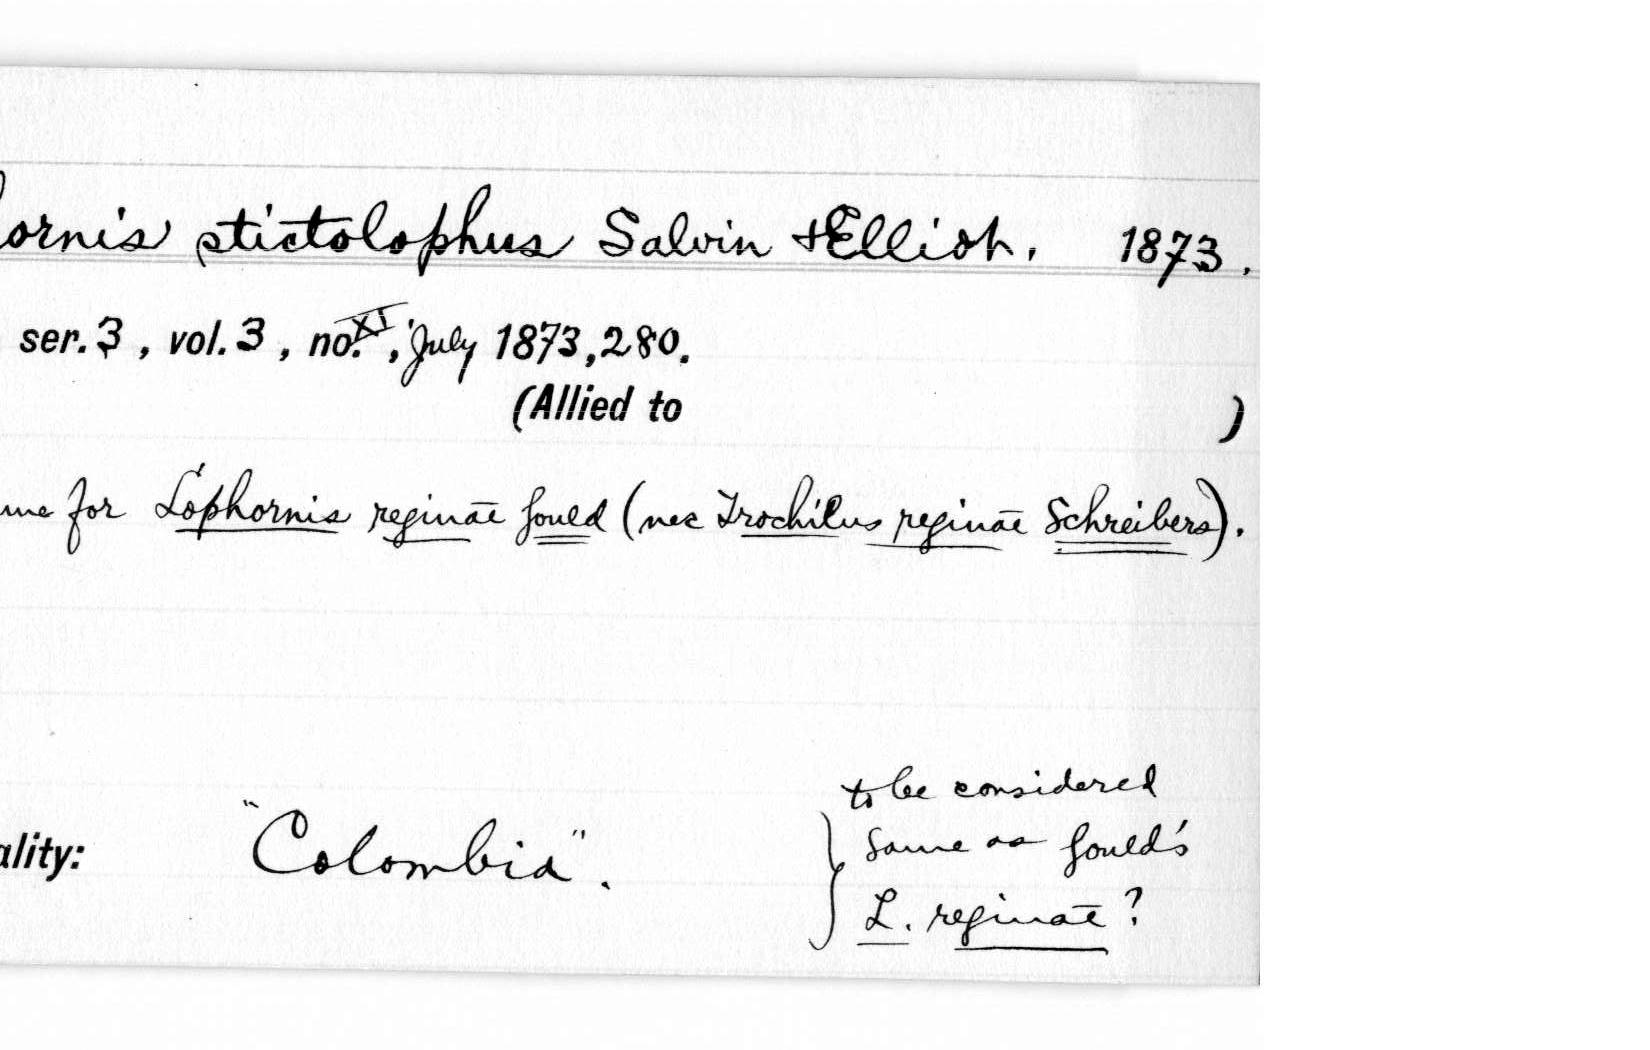 ornis stictolophus Salvin & Elliot. 1873.
ser. 3, vol. 3, no. XI, July 1873, 280.
(Allied to )
me for Lophornis reginae Gould (nec Trochilus reginae Schreibers).
to be considered
ality: "Colombia". same as Gould's
L. reginae?